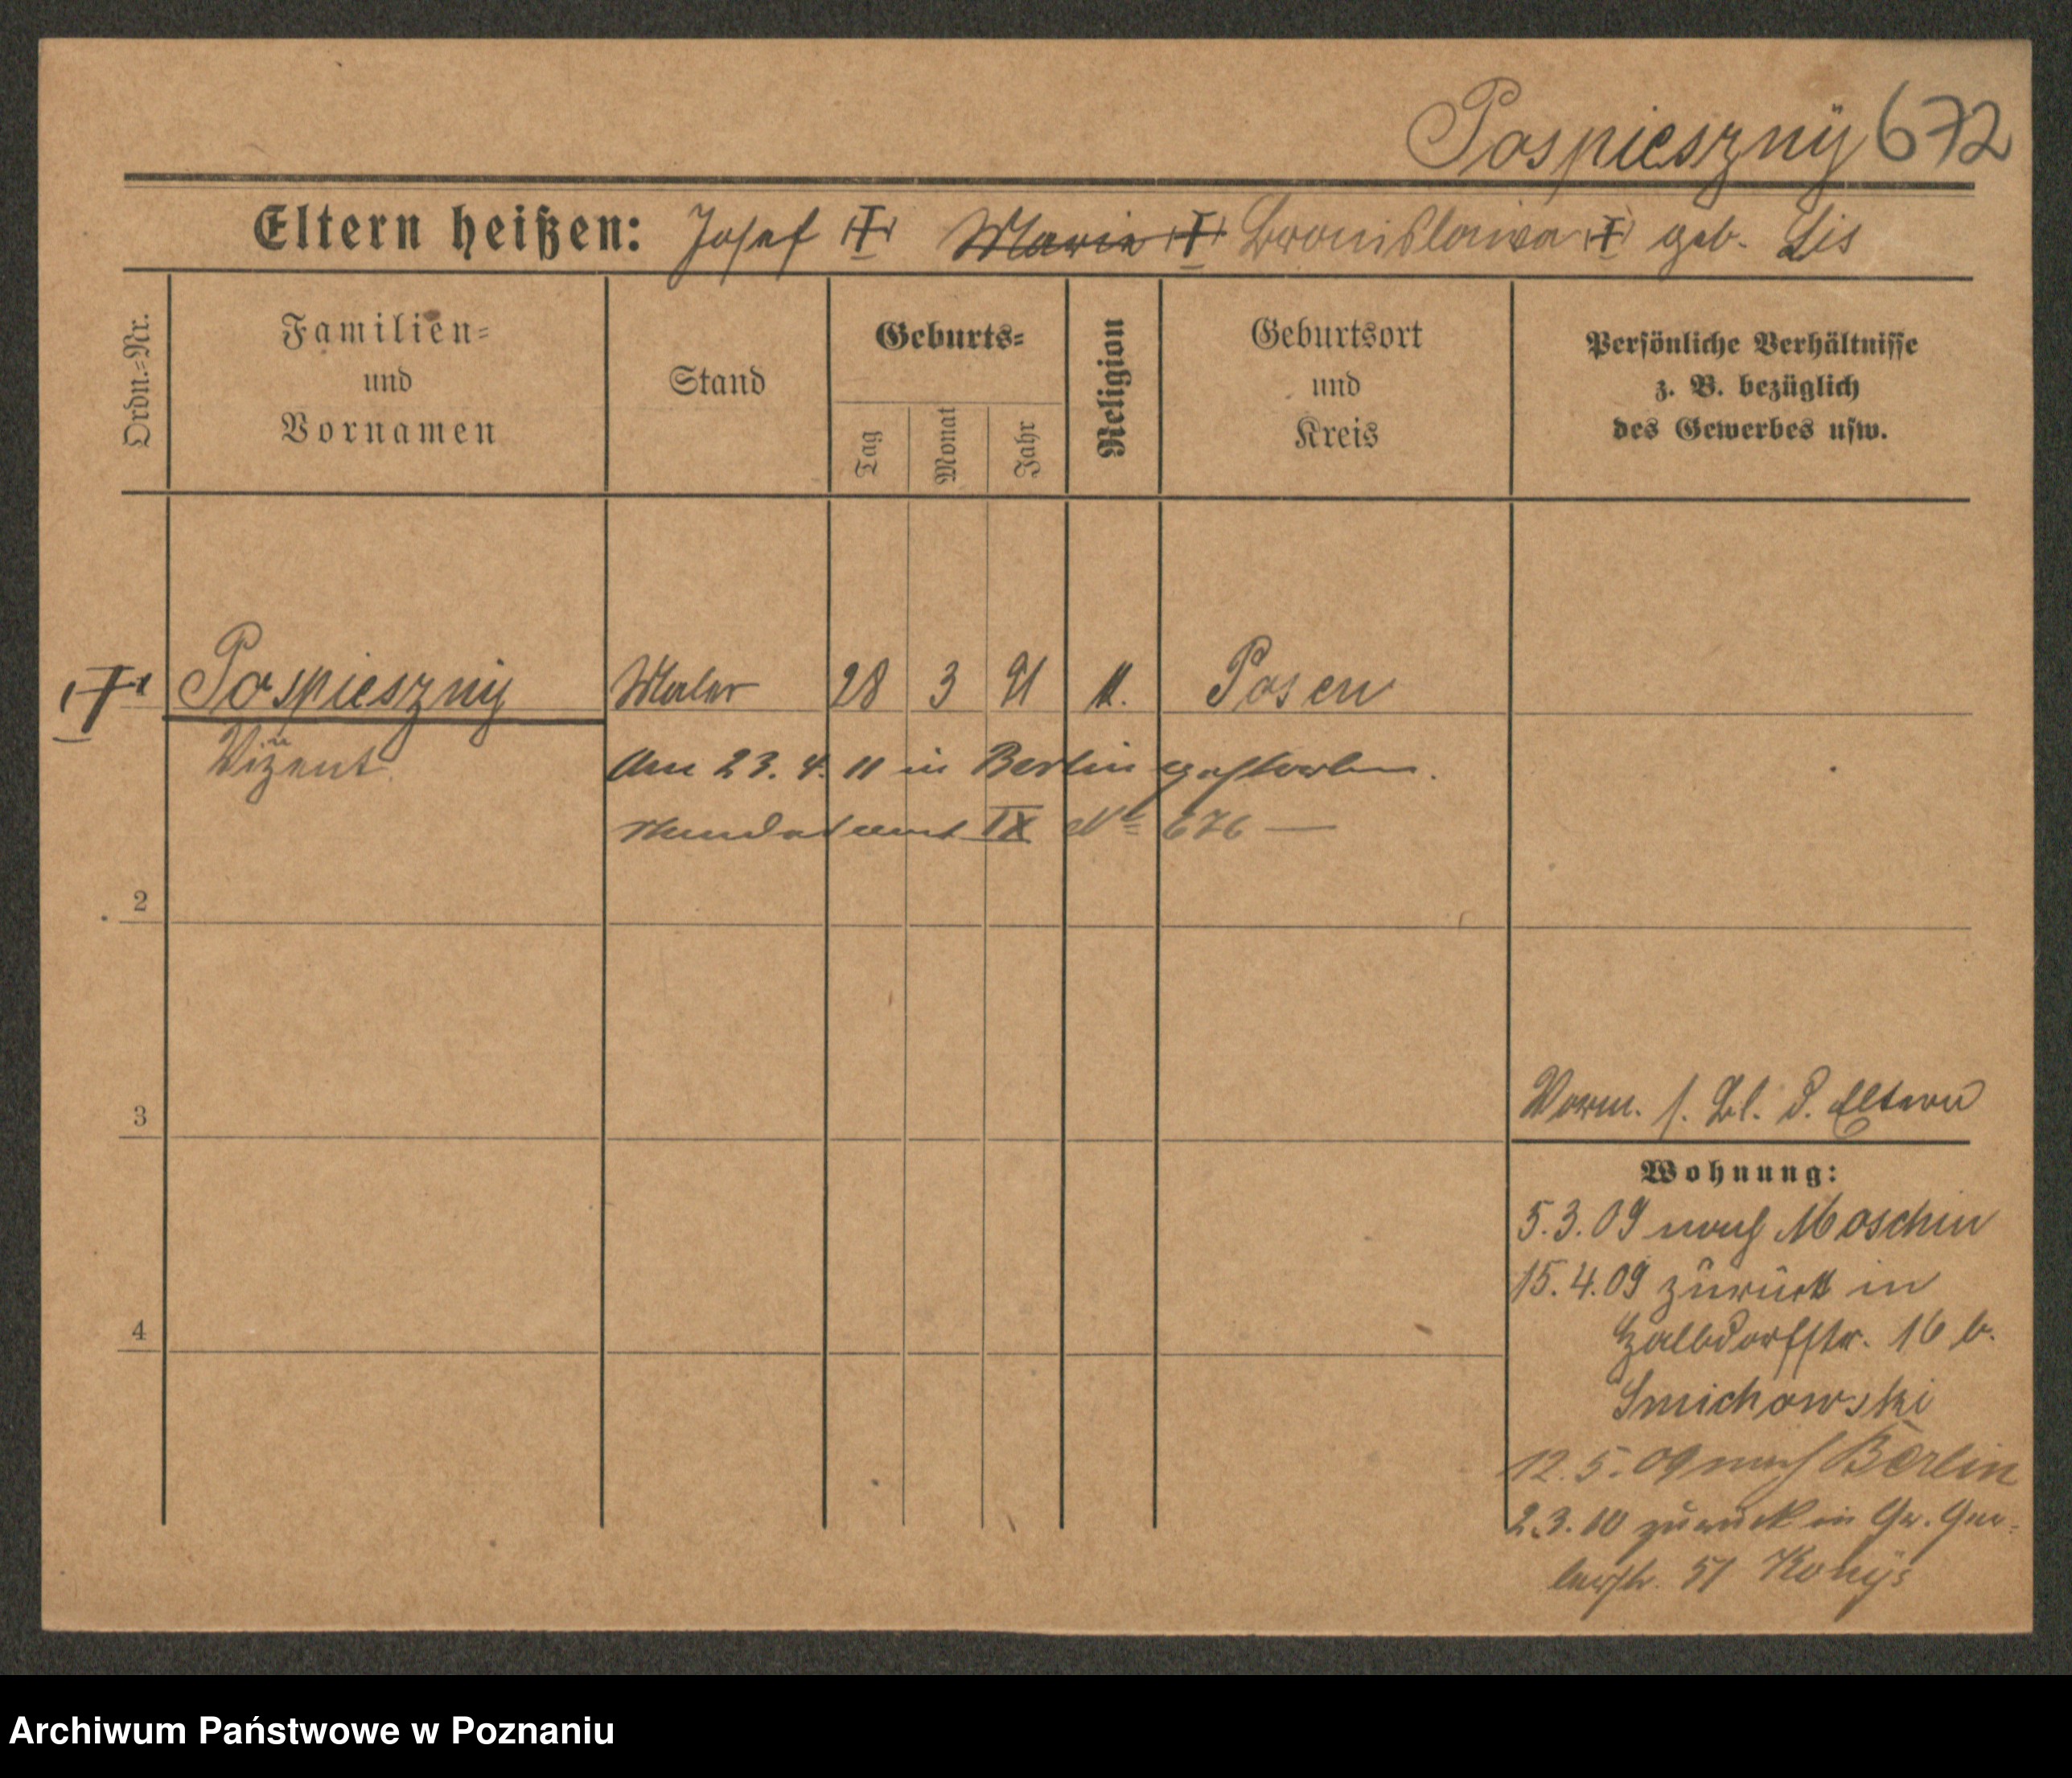 Pospieszny 672
Eltern heißen: Josef Maria Bronislawa geb. Lis
Ordn.=Nr.
Familien=
und
Vornamen
Stand
Geburts=
Tag
Monat
Jahr
Religion
Geburtsort
und
Kreis
Persönliche Verhältnisse
z. B. bezüglich
des Gewerbes usw.
Pospieszny Maler 28 3 91 k. Posen
Vizent
Am 23. 4. 11 in Berlin gestorben.
Standesamt IX No 676 —
2
3
4
Vorm. s. Bl. d. Eltern
Wohnung:
5.3.09 nach Moschin
15.4.09 zurück in
Halbdorfstr. 16 b.
Smichowski
12.5.09 nach Berlin
2.3.10 zurück in Gr. Ger=
berstr. 51
Archiwum Państwowe w Poznaniu